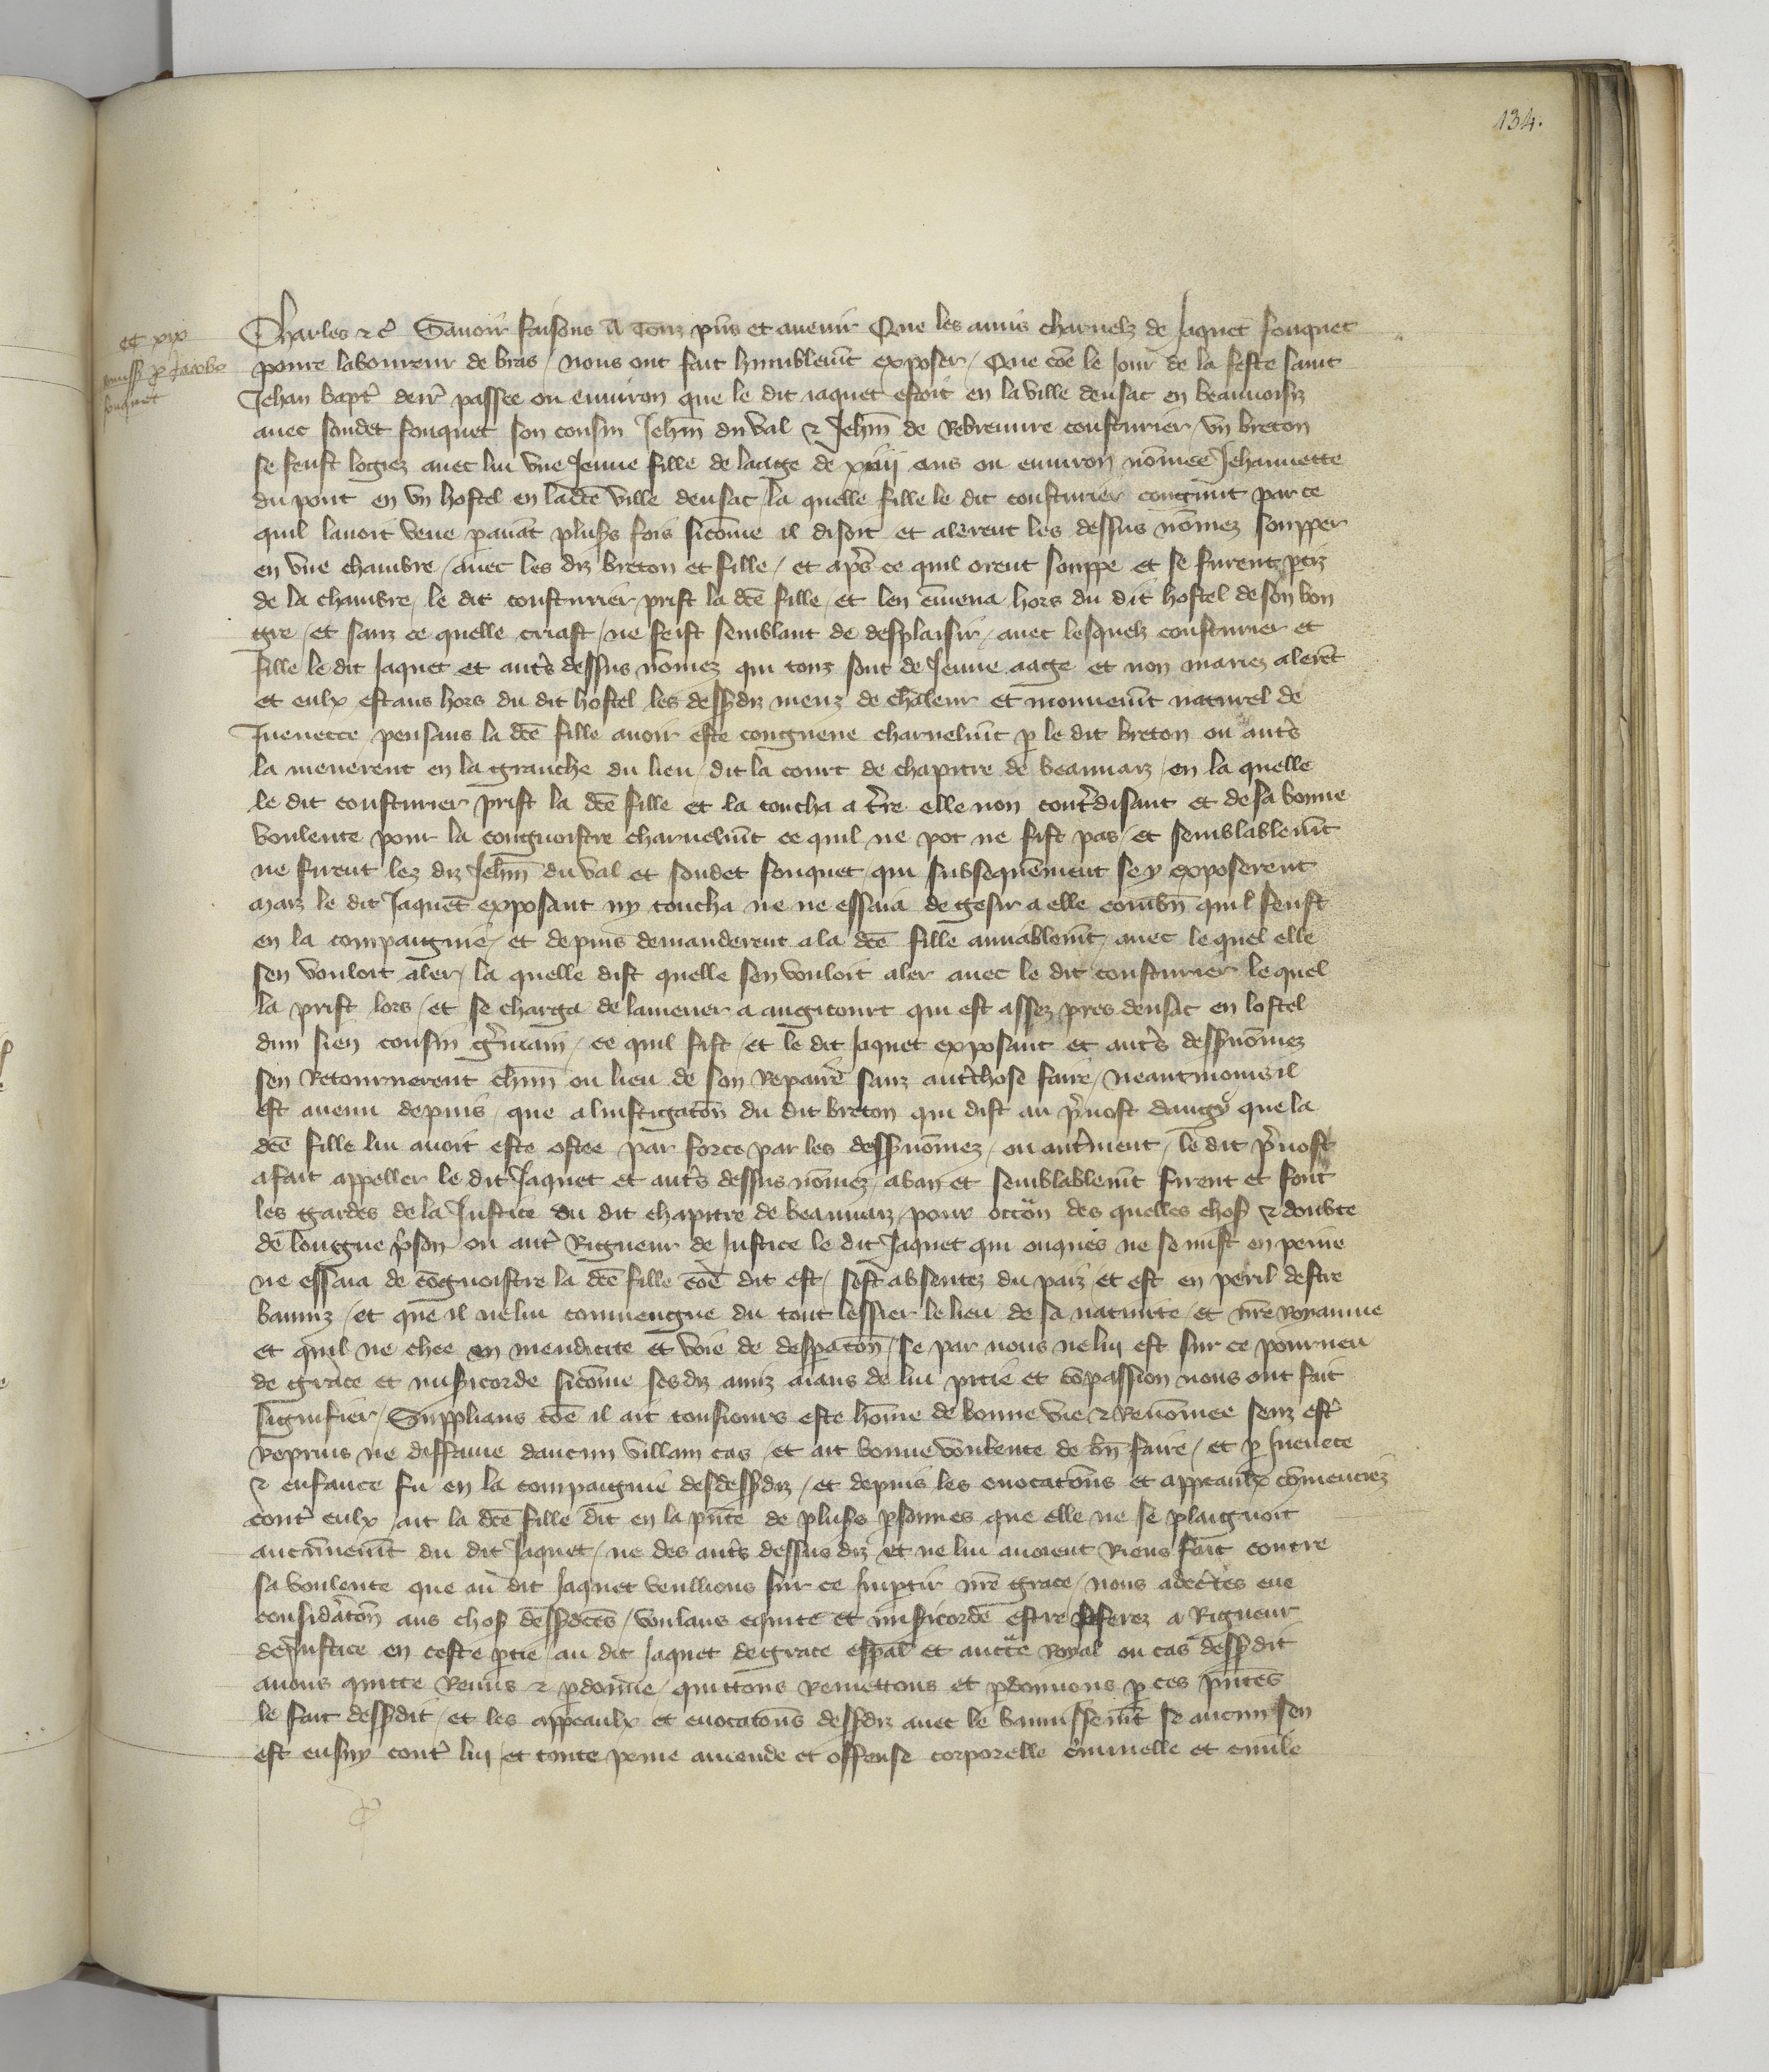 134.
et xix
remissio pro Jacobo
fouquet
Charles &c̃ Sauoir faisons A Touz p̃ns et auenir Que les amis charnelz de Jaquet fouquet
poure laboureur de bras / nous ont fait humblem̃t exposer / Que cõe le Jour de la feste saint
Jehan bapt̃ derr̃ passee ou enuiron que le dit iaquet estoit en la ville densac en beauuoisiz
auec soudet fouquet son cousin Jehñ du val & Jehñ de Rebreuure cousturier / vn breton
se feust logiez auec lui vne Jeune fille de laage de xiiij ans ou enuiron nõmee Jehannette
du pont en vn hostel en lad̃ce ville densac / la quelle fille le dit cousturier congnut par ce
quil lauoit veue p auãt pluss fois sicõme il disoit et alerent les dessus nõmez soupper
en vne chambre / auec les diz breton et fille / et ap̃s ce quil orent souppe et se furent ptiz
de la chambre / le dit cousturier prist la dc̃e fille / et len ẽmena hors du dit hostel de son bon
gre / et sanz ce quelle criast / ne feist semblant de desplaisir / auec lesquelz cousturier et
fille le dit Jaquet et aut̃s dessus nõmez qui touz sont de Jeune aage et non mariez alerẽt
et eulx estans hors du dit hostel les dessdiz meuz de chaleur et mouuem̃t naturel de
Juenetce pensans la dc̃e fille auoir este congneue charnelm̃t p le dit breton ou aut̃s
la menerent en la granche du lieu / dit la court de chapitre de beauuaiz / en la quelle
le dit cousturier prist la dc̃e fille et la coucha a t̃re elle non cont̃disant et de sa bonne
voulente pour la congnoistre charnelm̃t ce quil ne pot ne fist pas / et semblablem̃t
ne firent lez diz Jehñ du val et soudet fouquet / qui subsequẽment se y exposerent
maiz le dit Jaquet exposant ny toucha ne ne essaia de gesir a elle combñ quil feust
en la compaignie / et depuis demanderent a la dc̃e fille amiablem̃t / auec le quel elle
sen vouloit aler / la quelle dist quelle sen vouloit aler auec le dit cousturier le quel
la prist lors / et se charga de lamener a angicourt qui est assez pres densac en lostel
dun sien cousin g̃main / ce quil fist / et le dit Jaquet exposant et aut̃s dessnõmez
sen Retournerent chũn ou lieu de son Repaire sanz aut̃ chose faire / neantmoins il
est auenu depuis / que a linstigatõn du dit breton qui dist au p̃uost dangy que la
dc̃e fille lui auoit este ostee par force par les dessnõmez / ou aut̃ment / le dit p̃uost
a fait appeller le dit Jaquet et aut̃s dessus nõmez / a ban et semblablem̃t firent et font
les gardes de la Justice du dit chapitre de beauuaiz / pour occõn des quelles chos̃ & doubte
de longue p̃son ou aut̃ Rigueur de Justice le dit Jaquet qui onques ne se mist en peine
ne essaia de cõgnoistre la dc̃e fille cõe dit est / sest absentez du paiz / et est en peril destre
banniz / et que il ne lui conuiengne du tout lessier le lieu de sa natiuite / et nr̃e Royaume
et quil ne chee en mendicite et voie de despatõn / se par nous ne luj est sur ce pourueu
de grace et mis̃icorde sicõme sesdiz amiz aians de lui pitie et cõpassion nous ont fait
signifier / Supplians cõe il ait tousiours este hõme de bonne vie & Renõmee senz est̃
Reprins ne diffame daucun villain cas / et ait bonne voulente de bñ faire / et p Juenece
& enfance fu en la compaignie desdessdiz / et depuis les euocatõns et appeaulx cõmenciez
cont̃ eulx / ait la dc̃e fille dit en la pñce de pluss p̃sonnes que elle ne se plaignoit
aucũnem̃t du dit Jaquet / ne des aut̃s dessus diz et ne lui auoient Riens fait contre
sa voulente que au dit Jaquet veullions sur ce Jmptir nr̃e grace / nous adec̃tes eue
considãtõn aus chos̃ dessdc̃es / voulans equite et mis̃icorde estre preferez a Rigueur
de Justice en ceste ptie / au dit Jaquet de grace esp̃al et auct̃e Royal ou cas dessdit
auons quitte Remis & pdonne / quittons Remettons et pdonnons p ces p̃ntes
le fait dessdit / et les appeaulx et euocatõns dessdiz auec le bannissem̃t se aucun sen
est ensuy cont̃ luj / et toute peine amende et offense corporelle c̃minelle et ciuile